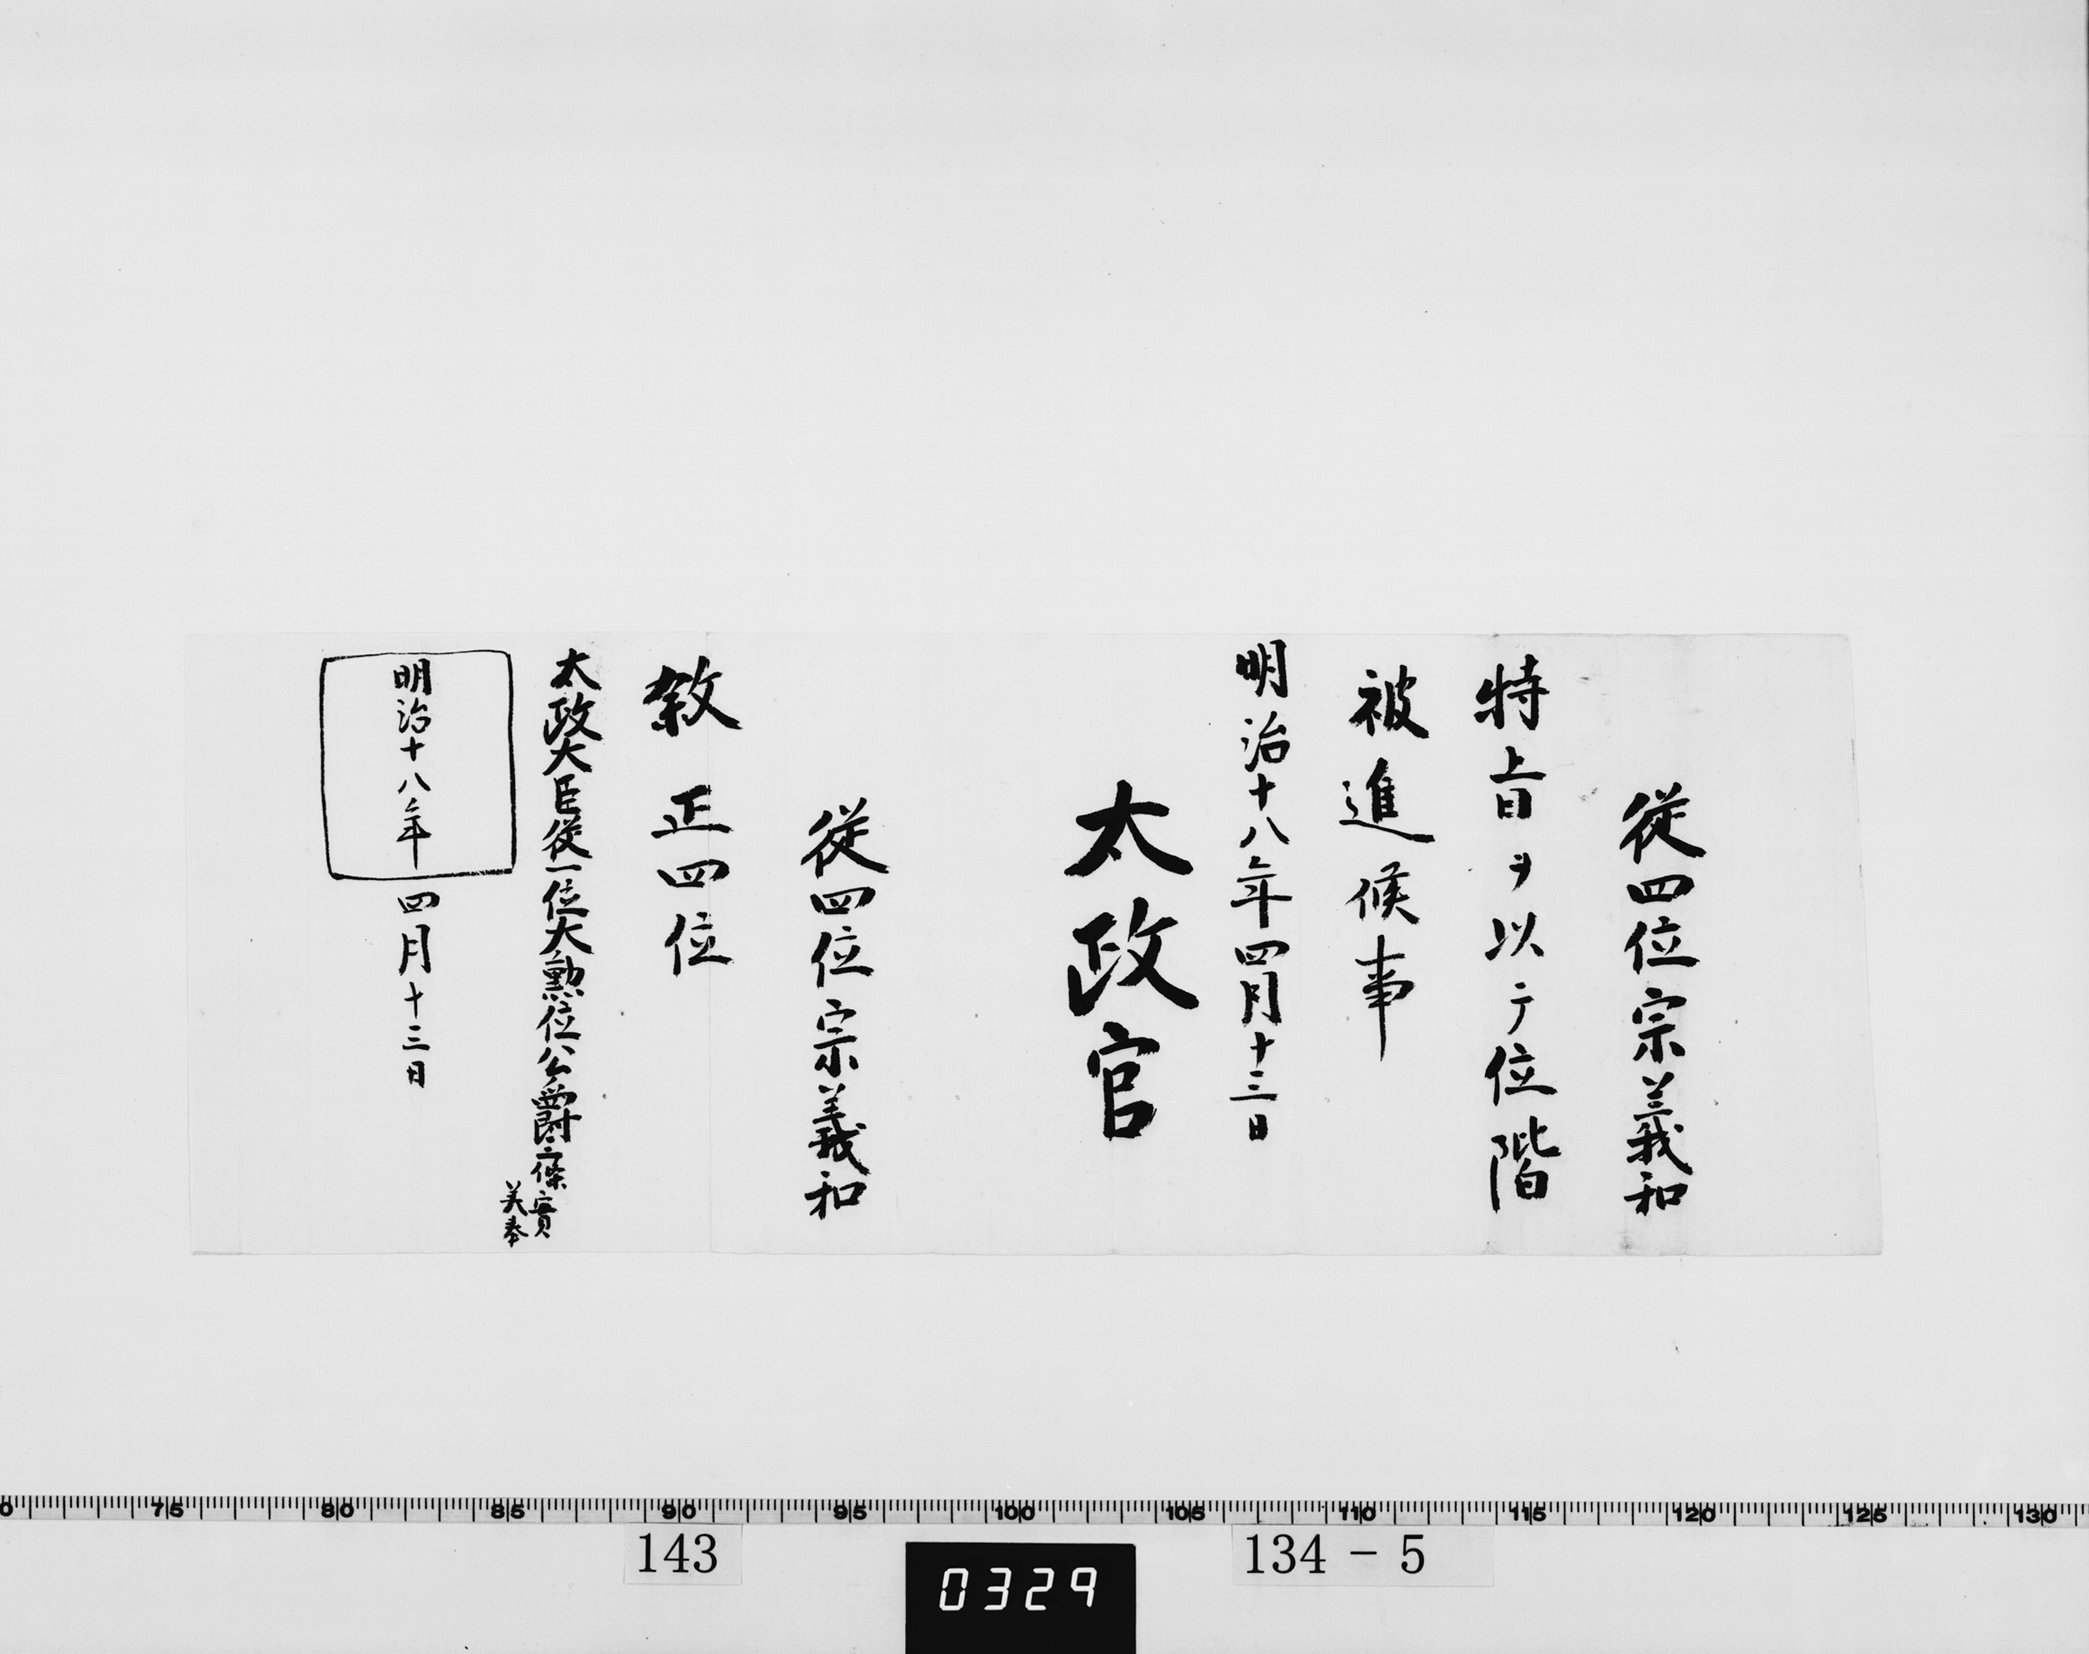 從四位宗義和
特旨ヲ以テ位階
被進候事
明治十八年四月十三日
太政官
從四位宗義和
敘正四位
太政大臣從一位大勲位公爵三條實
美奉
明治十八年四月十三日
0 75 80 85 90 95 100 105 110 115 120 125 130
143
0329
134-5